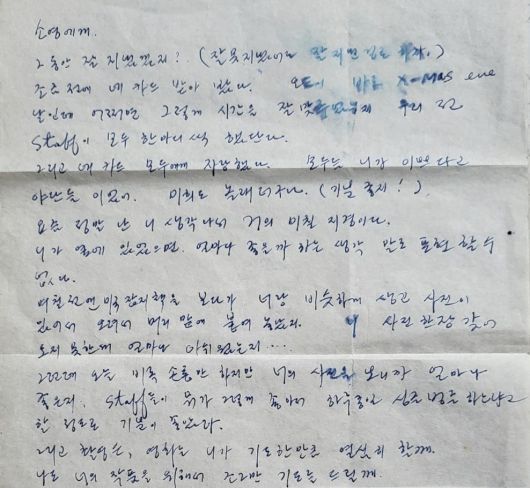 소영에게.
그동안 잘 지냈겠지? (잘 못지냈어도 잘 지낸걸로 하자.)
조금전에 네 카드 받아 봤다. 오늘이 바로 X-Mas eve
날인데 어쩌면 그렇게 시간을 잘 맞추었는지 우리 전
staff이 모두 한마디씩 했단다.
그리고 네 카드 모두에게 자랑했다. 모두들 니가 이쁘다고
야단들 이었어. 미희도 놀래더구나. (기분 좋지!).
요즘 정말 난 니 생각나서 거의 미칠 지경이다.
니가 옆에 있었으면 얼마나 좋을까 하는 생각 말로 표현 할 수
없다.
며칠전엔 미국잡지책을 보다가 너랑 비슷하게 생긴 사진이
있어서 오려서 머리 앞에 붙여 놓았지. 니 사진 한장 갖어
오지 못한게 얼마나 아쉬웠는지....
그런데 오늘 비록 손톱만 하지만 너의 사진을 보니까 얼마나
좋은지. staff들이 뭐가 그렇게 좋아서 하루종일 싱글벙글 하느냐고
할 정도로 기분이 좋았다.
그리고 촬영은, 영화는 니가 기도한만큼 열심히 할께.
나도 너의 작품을 위해서 기도를 드릴께.